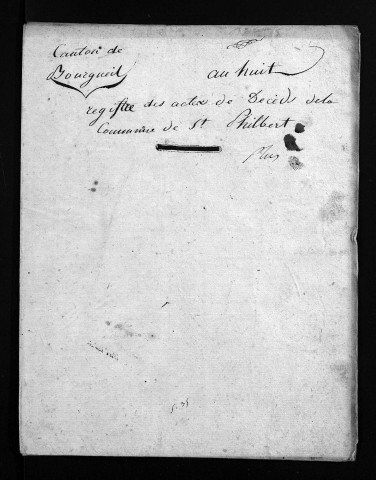 Canton de
Bourgueil
an huit
registre des actes de Décès de la
Commune de St Philbert